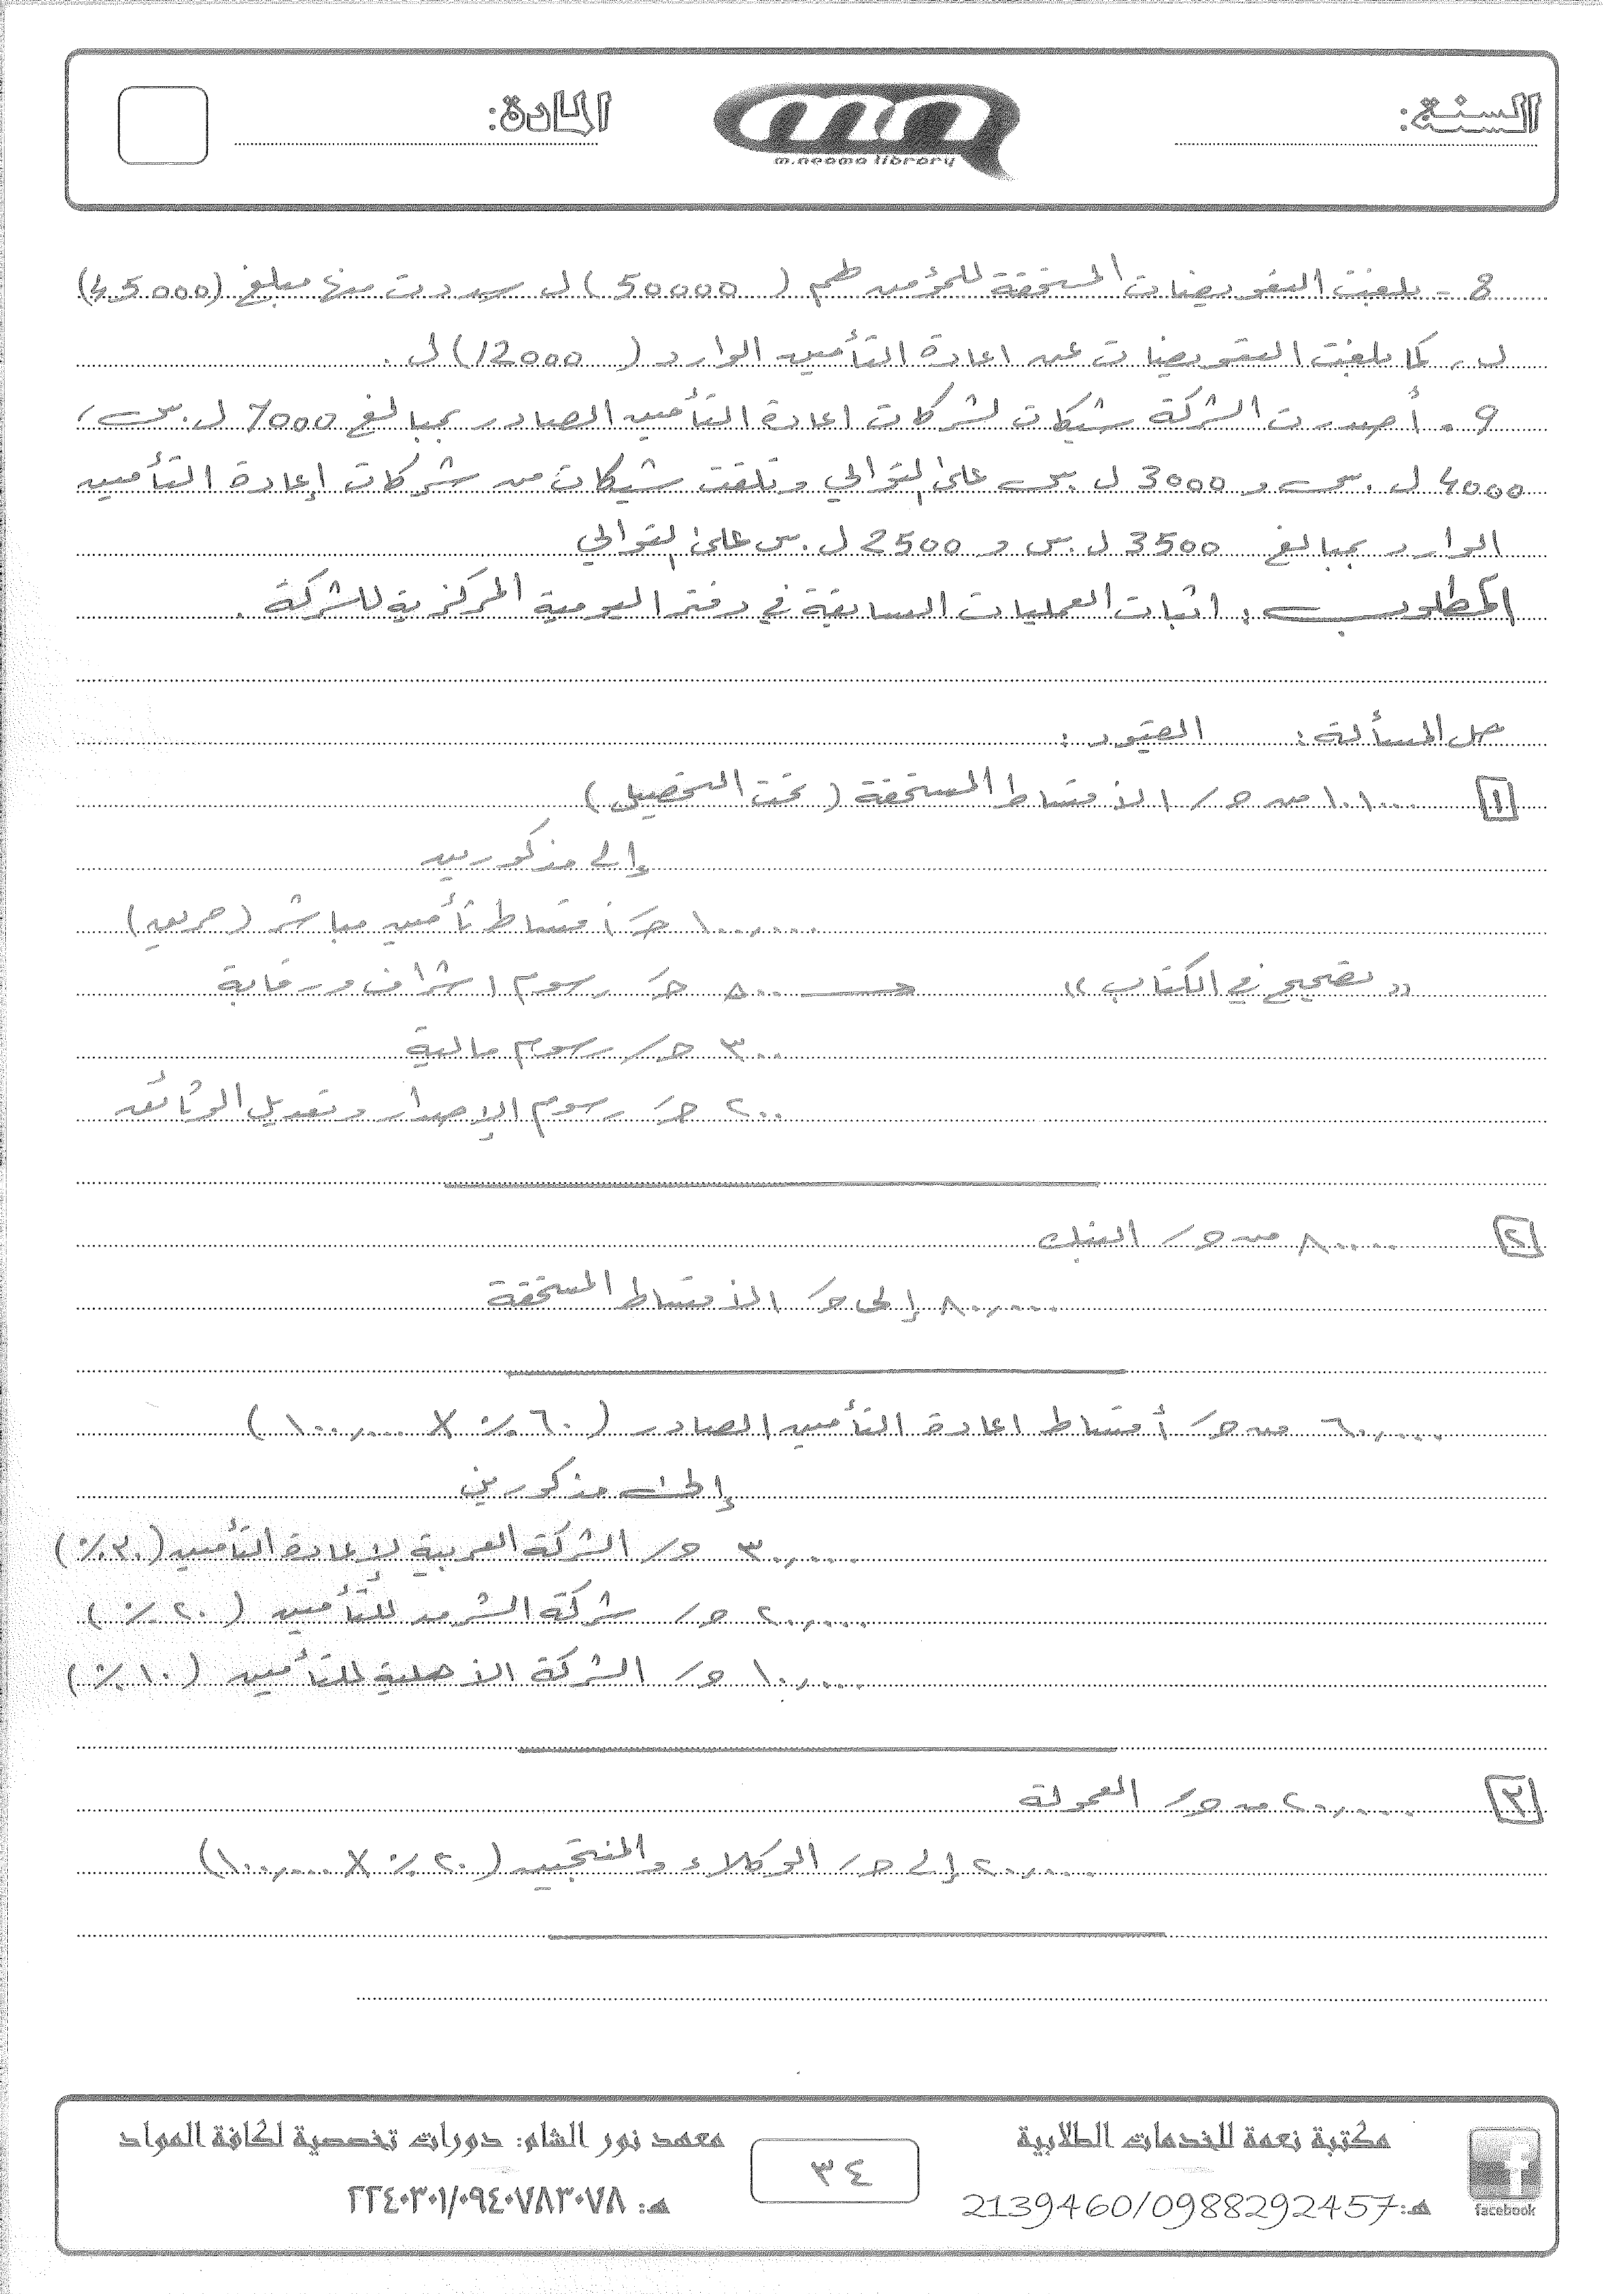 السنة:
المادة:
m.neama library
8 - بلغت التعويضات المستحقة للمؤمن لهم ( 50000 ) ل سددت منها مبلغ (45000)
ل. كما بلغت التعويضات عن اعادة التأمين الوارد ( 12000 ) ل .
9 . أصدرت الشركة شيكات لشركات اعادة التأمين الصادر بمبالغ 7000 ل.س،
4000 ل.س و 3000 ل.س على التوالي و تلقت شيكات من شركات إعادة التأمين
الوارد بمبالغ 3500 ل.س و 2500 ل.س على التوالي
المطلوب : اثبات العمليات السابقة في دفتر اليومية المركزية للشركة .
حل المسألة: القيود :
١ ١٠١٠٠٠ من ح/ الأقساط المستحقة ( تحت التحصيل )
إلى مذكورين
١٠٠,٠٠٠ ح/ أقساط تأمين مباشر (حريق)
(( تصحيح في الكتاب )) ٥٠٠ ح/ رسوم اشراف ورقابة
٣٠٠ ح/ رسوم مالية
٢٠٠ ح/ رسوم الإصدار وتعديل الوثائق
٢ ٨٠٠٠٠ من ح/ البنك
٨٠,٠٠٠ إلى ح/ الأقساط المستحقة
٦٠,٠٠٠ من ح/ أقساط اعادة التأمين الصادر ( ٦٠٪ X ١٠٠,٠٠٠ )
إلى مذكورين
٣٠,٠٠٠ ح/ الشركة العربية لإعادة التأمين (٣٠٪)
٢٠,٠٠٠ ح/ شركة الشرق للتأمين ( ٢٠٪ )
١٠,٠٠٠ ح/ الشركة الأهلية للتأمين ( ١٠٪ )
٣ ٢٠,٠٠٠ من ح/ العمولة
٢٠,٠٠٠ إلى ح/ الوكلاء والمنتجين ( ٢٠٪ X ١٠٠,٠٠٠ )
مكتبة نعمة للخدمات الطلابية
هـ: 2139460/0988292457
facebook
٣٤
معهد نور الشام: دورات تخصصية لكافة المواد
هـ: ٢٢٤٠٣٠١/٠٩٤٠٧٨٣٠٧٨